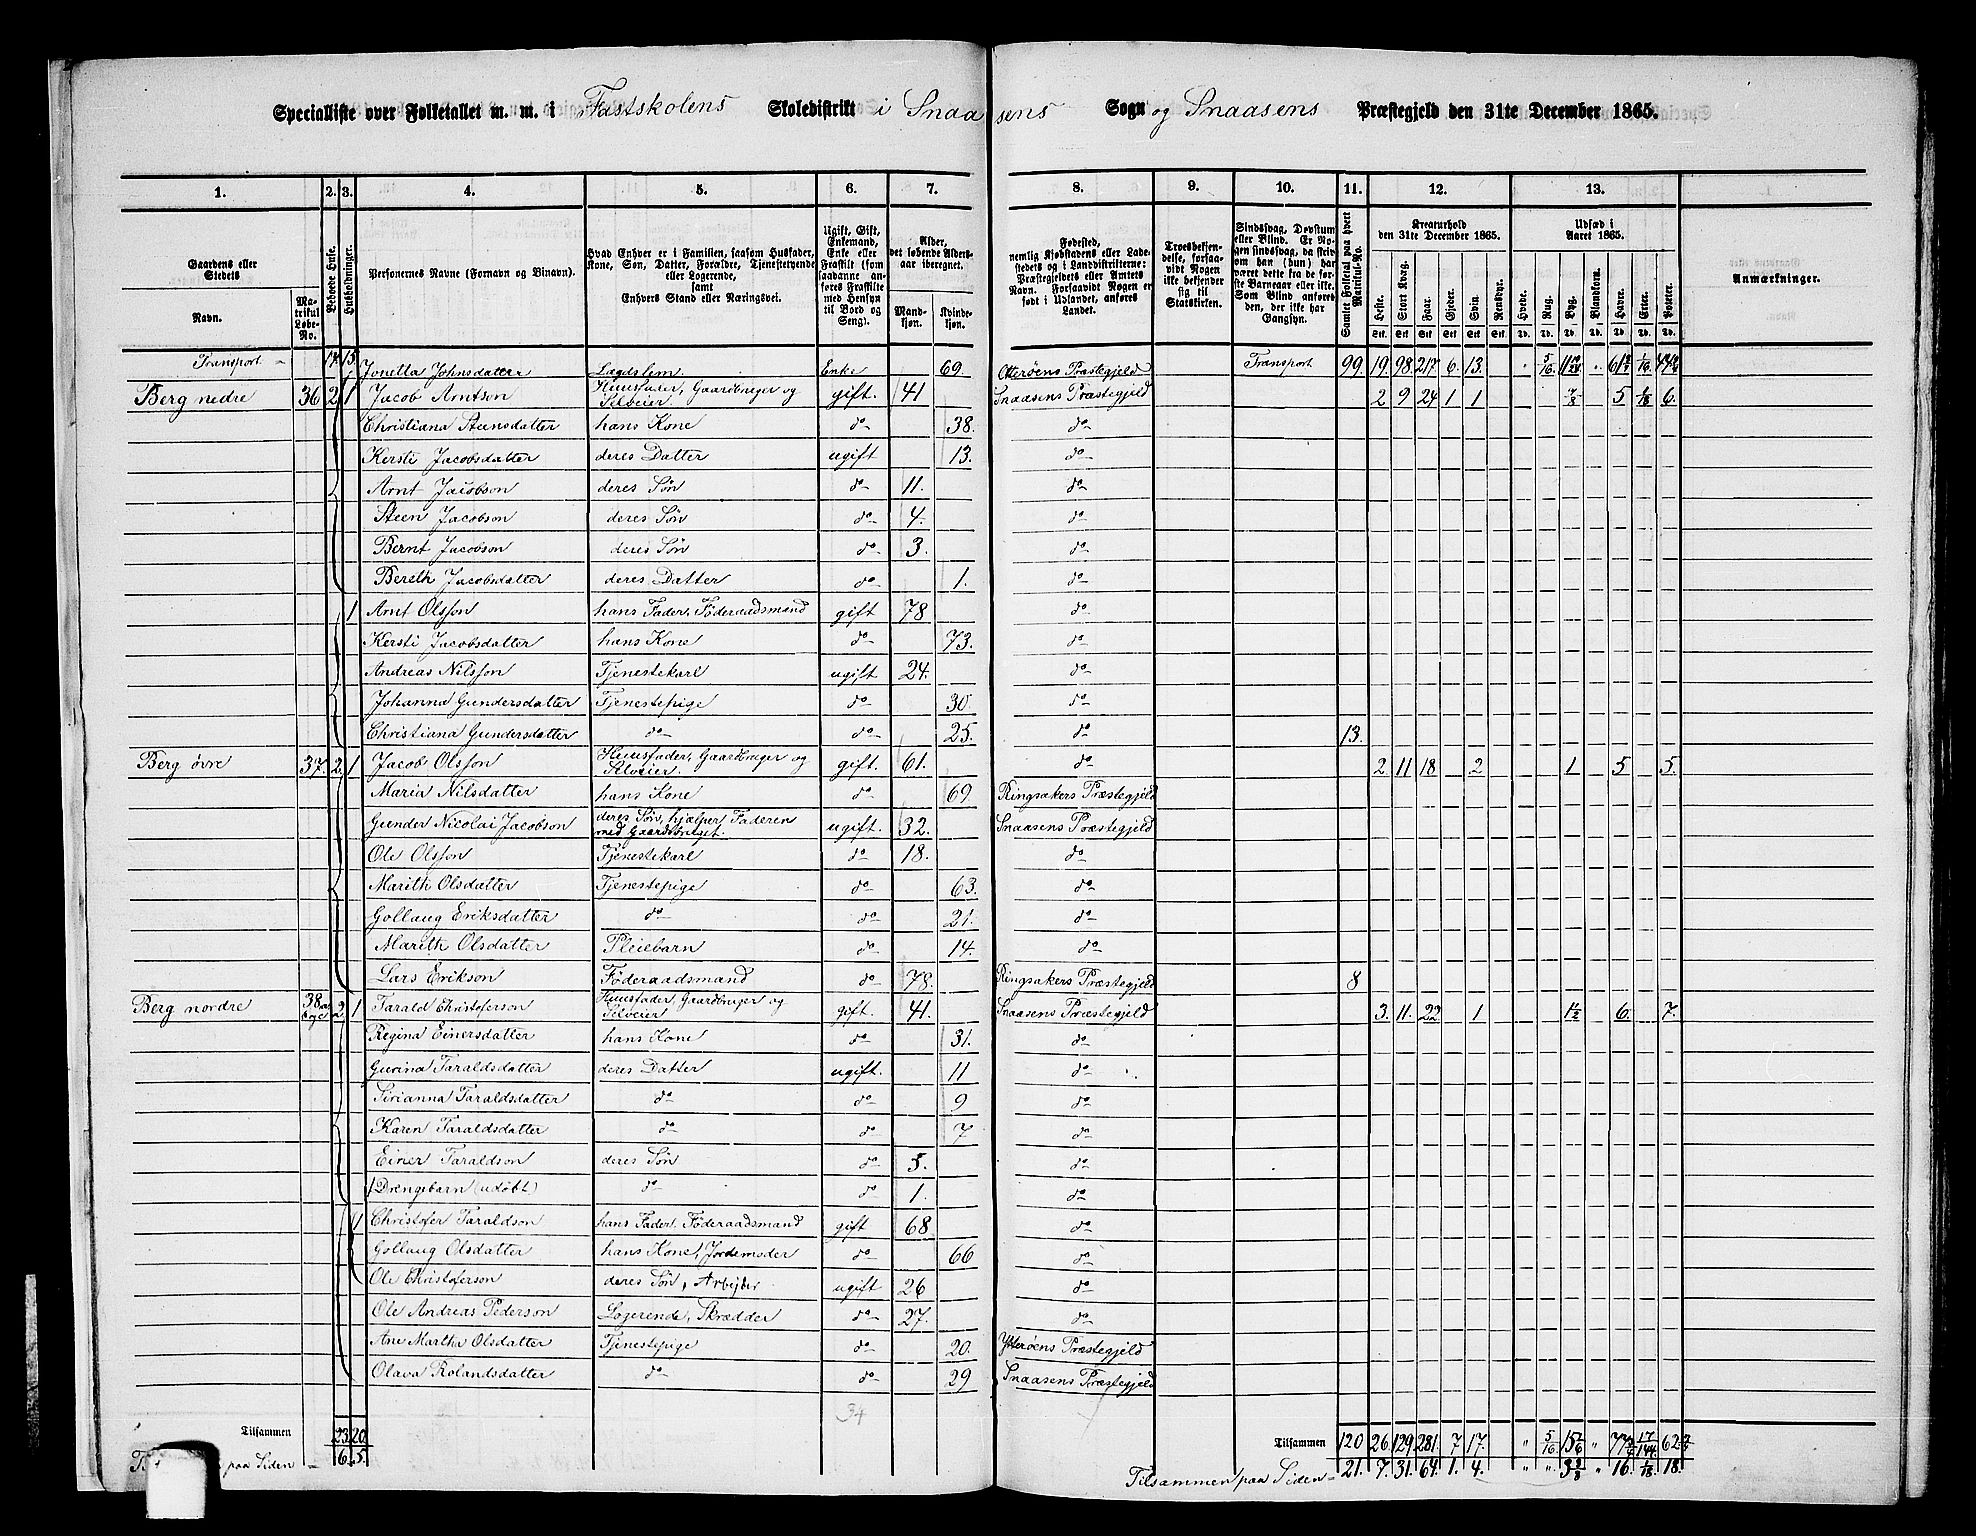 Specialliste over Folketallet m. m. i Fastskolens Skoledistrikt i Snaasens Sogn og Snaasens Præstegjeld den 31te December 1865.
1. 2. 3. 4. 5. 6. 7. 8. 9. 10. 11. 12. 13.
Gaardens eller Stedets Navn. Matrikul Løbe-No. Beboede Huse. Husholdninger. Personernes Navne (Fornavn og Binavn). Hvad Enhver er i Familien, saasom Husfader, Kone, Søn, Datter, Forældre, Tjenestetyende eller Logerende, samt Enhvers Stand eller Næringsvei. Ugift, Gift, Enkemand, Enke eller Fraskilt (som saadanne anføres Fraskilte med Hensyn til Bord og Seng). Alder, det løbende Aldersaar iberegnet. Mandkjøn. Kvindekjøn. Fødested, nemlig Kjøbstadens eller Ladestedets og i Landdistrikterne: Præstegjeldets eller Amtets Navn. Forsaavidt Nogen er født i Udlandet, anføres Landet. Troesbekjendelse, forsaavidt Nogen ikke bekjender sig til Statskirken. Sindssvag, Døvstum eller Blind. Er Nogen sindssvag, da skrives om han (hun) har været dette fra de første Barneaar eller ikke. Som Blind anføres den, der ikke har Gangsyn. Samlet Folketal paa hvert Matrikul-No. Kreaturhold den 31te December 1865. Heste. Stort Kvæg. Faar. Gjeder. Svin. Rensdyr. Udsæd i Aaret 1865. Hvede. Rug. Byg. Blandkorn. Havre. Erter. Poteter. Anmærkninger.
Transport 14 15 Jonetta Johnsdatter Lægdslem Enke 69 Otterøens Præstegjeld Transport 99 19 98 217 6 13
Berg nedre 36 2 1 Jacob Arntson Huusfader, Gaardbruger og Selveier gift 41 Snaasens Præstegjeld 2 9 24 1 1 7/8 5 1/18 6
Christiana Steensdatter hans Kone do 38. do
Kersti Jacobsdatter deres Datter ugift 13. do
Arnt Jacobson deres Søn do 11. do
Steen Jacobson deres Søn do 4. do
Bernt Jacobson deres Søn do 3. do
Bereth Jacobsdatter deres Datter do 1. do
1 Arnt Olsson hans Fader, Föderaadsmand gift 78 do
Kersti Jacobsdatter hans Kone do 73. do
Andreas Nilsson Tjenestekarl ugift 24. do
Johanna Gundersdatter Tjenestepige do 30. do
Christiana Gundersdatter do do 25. do 13.
Berg øvre 37. 2 1 Jacob Olsson Huusfader, Gaardbruger og Selveier gift 61. do 2 11 18 2 1 5 5.
Maria Nilsdatter hans Kone do 69 Ringsakers Præstegjeld
Gunder Nicolai Jacobson deres Søn, hjælper Faderen med Gaardsbruget. ugift. 32. Snaasens Præstegjeld
Ole Olsson Tjenestekarl do 18. do
Marith Olsdatter Tjenestepige do 63. do
Gollaug Eriksdatter do do 21. do
Marith Olsdatter Pleiebarn do 14. do
Lars Erikson Föderaadsmand do 78. Ringsakers Præstegjeld 8
Berg nordre 38 2 1 Tarald Christoferson Huusfader, Gaardbruger og Selveier gift. 41. Snaasens Præstegjeld 3. 11. 22 1 1 1/2 6. 7.
Regina Einersdatter hans Kone do 31. do
Gurina Taraldsdatter deres Datter ugift. 11 do
Sirianna Taraldsdatter do do 9 do
Karen Taraldsdatter do do 7 do
Einer Taraldson deres Søn do 5. do
Drengebarn (udöbt) do do 1. do
1 Christofer Taraldson hans Fader, Föderaadsmand gift 68 do
Gollaug Olsdatter hans Kone, Jordemoder do 66 do
Ole Christoferson deres Søn, Arbejder ugift 26 do
Ole Andreas Pederson Logerende, Skrædder do 27. do
Ane Martha Olsdatter Tjenestepige do 20. Ytterøens Præstegjeld
Olava Rolandsdatter do do 29 Snaasens Præstegjeld
34
Tilsammen 23 20 Tilsammen 120 26. 129 281. 7 17. " 5/16 15 " 62
paa Siden 6. 5. Tilsammen paa Siden 21. 7. 31. 64. 1. 4. " " 3 3/8 " 16. 1/18 18.